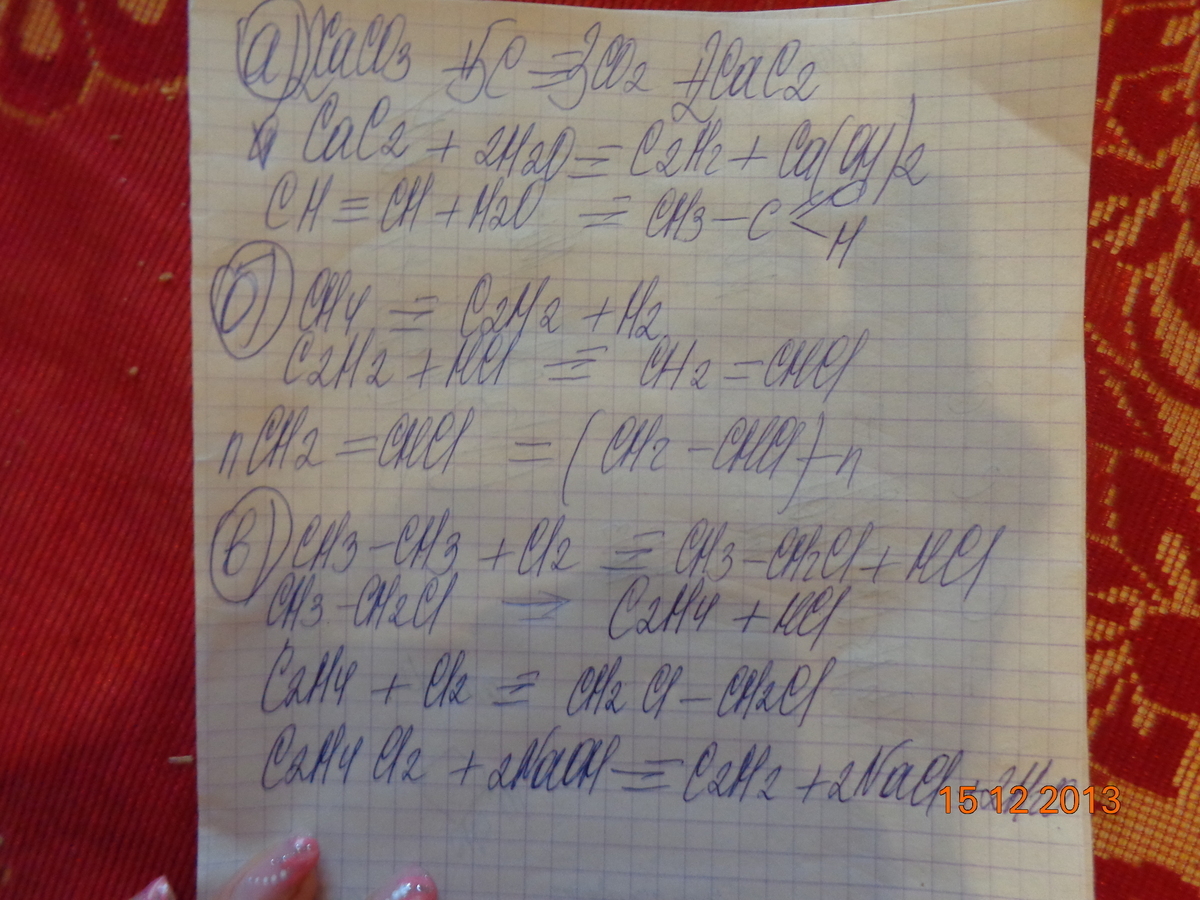 а) 2CaCO3 + 5C = 3CO2 + 2CaC2
CaC2 + 2H2O = C2H2 + Ca(OH)2
CH ≡ CH + H2O = CH3 - C
O
H
б) CH4 = C2H2 + H2
C2H2 + HCl = CH2 = CHCl
nCH2 = CHCl = (CH2 - CHCl)-n
в) CH3 - CH3 + Cl2 = CH3 - CH2Cl + HCl
CH3 - CH2Cl → C2H4 + HCl
C2H4 + Cl2 = CH2Cl - CH2Cl
C2H4Cl2 + 2NaOH = C2H2 + 2NaCl + 2H2O
15 12 2013